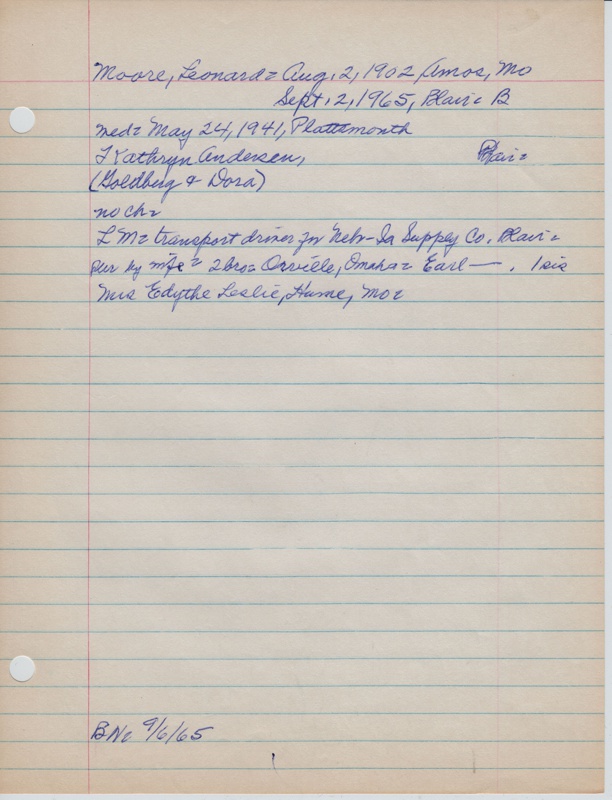 Moore, Leonard= Aug. 2, 1902, Amos, Mo
Sept. 2, 1965, Blair= B
med= May 24, 1941, Plattsmouth
Kathryn Andersen, Blair=
(Goldberg & Dora)
no ch=
L M= transport driver for Nebr-Ia Supply Co. Blair=
sur by wife= 2 bro= Orville, Omaha= Earl —. 1 sis
Mrs Edythe Leslie, Hume, Mo=
B No 9/6/65